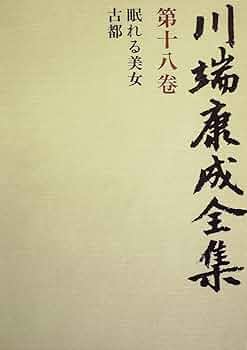 川端康成全集
第十八巻
眠れる美女
古都